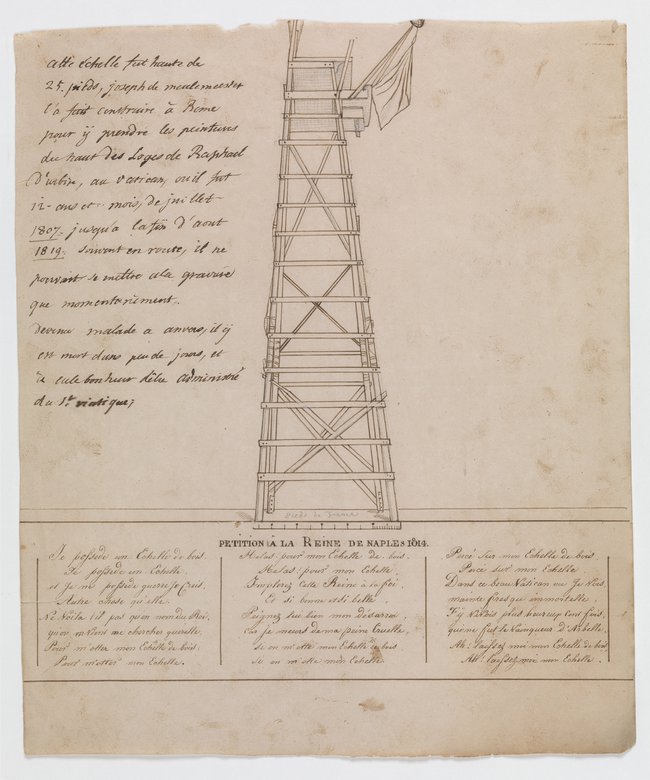 Cette Echelle fut haute de
25. pieds, joseph de meulemeester
l'a fait construire à Rome
pour ÿ prendre les peintures
du haut des Loges de Raphael
D'urbin, au vatican, ou il fut
12 ans et mois, de juillet
1807. jusqu'a la fin d'aout
1819. souvent en route, il ne
pouvait se mettre a la gravure
que momentanement.
Devenu malade a anvers, il ÿ
est mort dans peu de jours, et
à eu le bonheur d'être administré
du St. viatique;
Pieds de France
PETITION À LA REINE DE NAPLES 1814.
Je possede un Echelle de bois.
Je possede un Echelle,
et Je ne possede guere Je Crois,
Autre chose qu'elle.
Ne Voila t'il pas qu'on nom du Roi,
qu'on vient me chercher querelle,
Pour m'otter mon Echelle de bois.
Pour m'otter mon Echelle.
Helas pour mon Echelle de bois.
Helas, pour mon Echelle,
Implorez Cette Reine à la foi
Et si bonne et si belle
Peignez lui bien mon désarroi
Car je meurs de ma peine Cruelle,
si on m'otte mon Echelle de bois
si on m'otte mon Echelle.
Percé sur mon Echelle de bois.
Percé sur mon Echelle.
Dans ce beau Vatican ou Je Vois,
mainte fresque immortelle.
J'y Vivois plus heureux Cent fois,
que ne fut le Vainqueur d'Arbelle.
Ah! laissez moi mon Echelle de bois,
Ah! laissez moi mon Echelle.